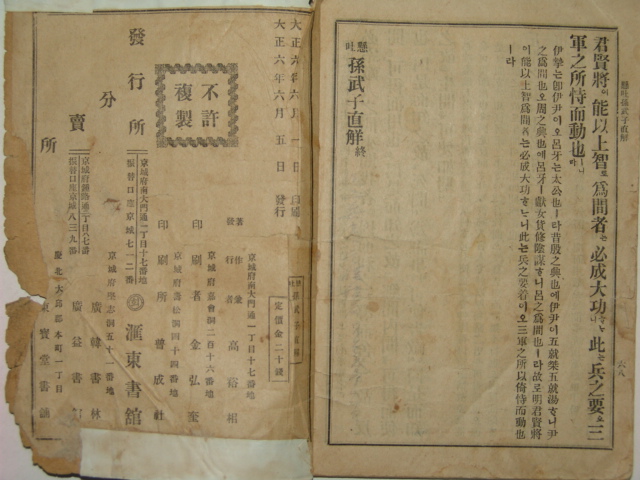 懸吐孫武子直解
六八
君賢將이能以上智로爲間者는必成大功이니此는兵之要오三
軍之所恃而動也ㅣ니라
伊摯는卽伊尹이오呂牙는太公也ㅣ라昔殷之興也에伊尹이五就桀五就湯하니尹
之爲間也오周之興也에呂牙ㅣ獻女貨修陰謀하니呂之爲間也ㅣ라故로明君賢將
이能以上智爲間者는必成大功하나니此는兵之要着이오三軍之所以倚恃而動也
ㅣ라
懸吐孫武子直解 終
大正六年六月一日 印刷
大正六年六月五日 發行
不許
複製
懸吐 孫武子直解
定價金二十錢
京城府南大門通一丁目十七番地
著作兼
發行者 高裕相
京城府嘉會洞二百十六番地
印刷者 金弘奎
京城府壽松洞四十四番地
印刷所 普成社
發行所
京城府南大門通一丁目十七番地
振替口座京城七一二番
滙東書館
分賣所
京城府
廣韓書林
京城府鍾路通
振替口座京城八三九番
廣益書館
慶北大邱郡本町一丁目